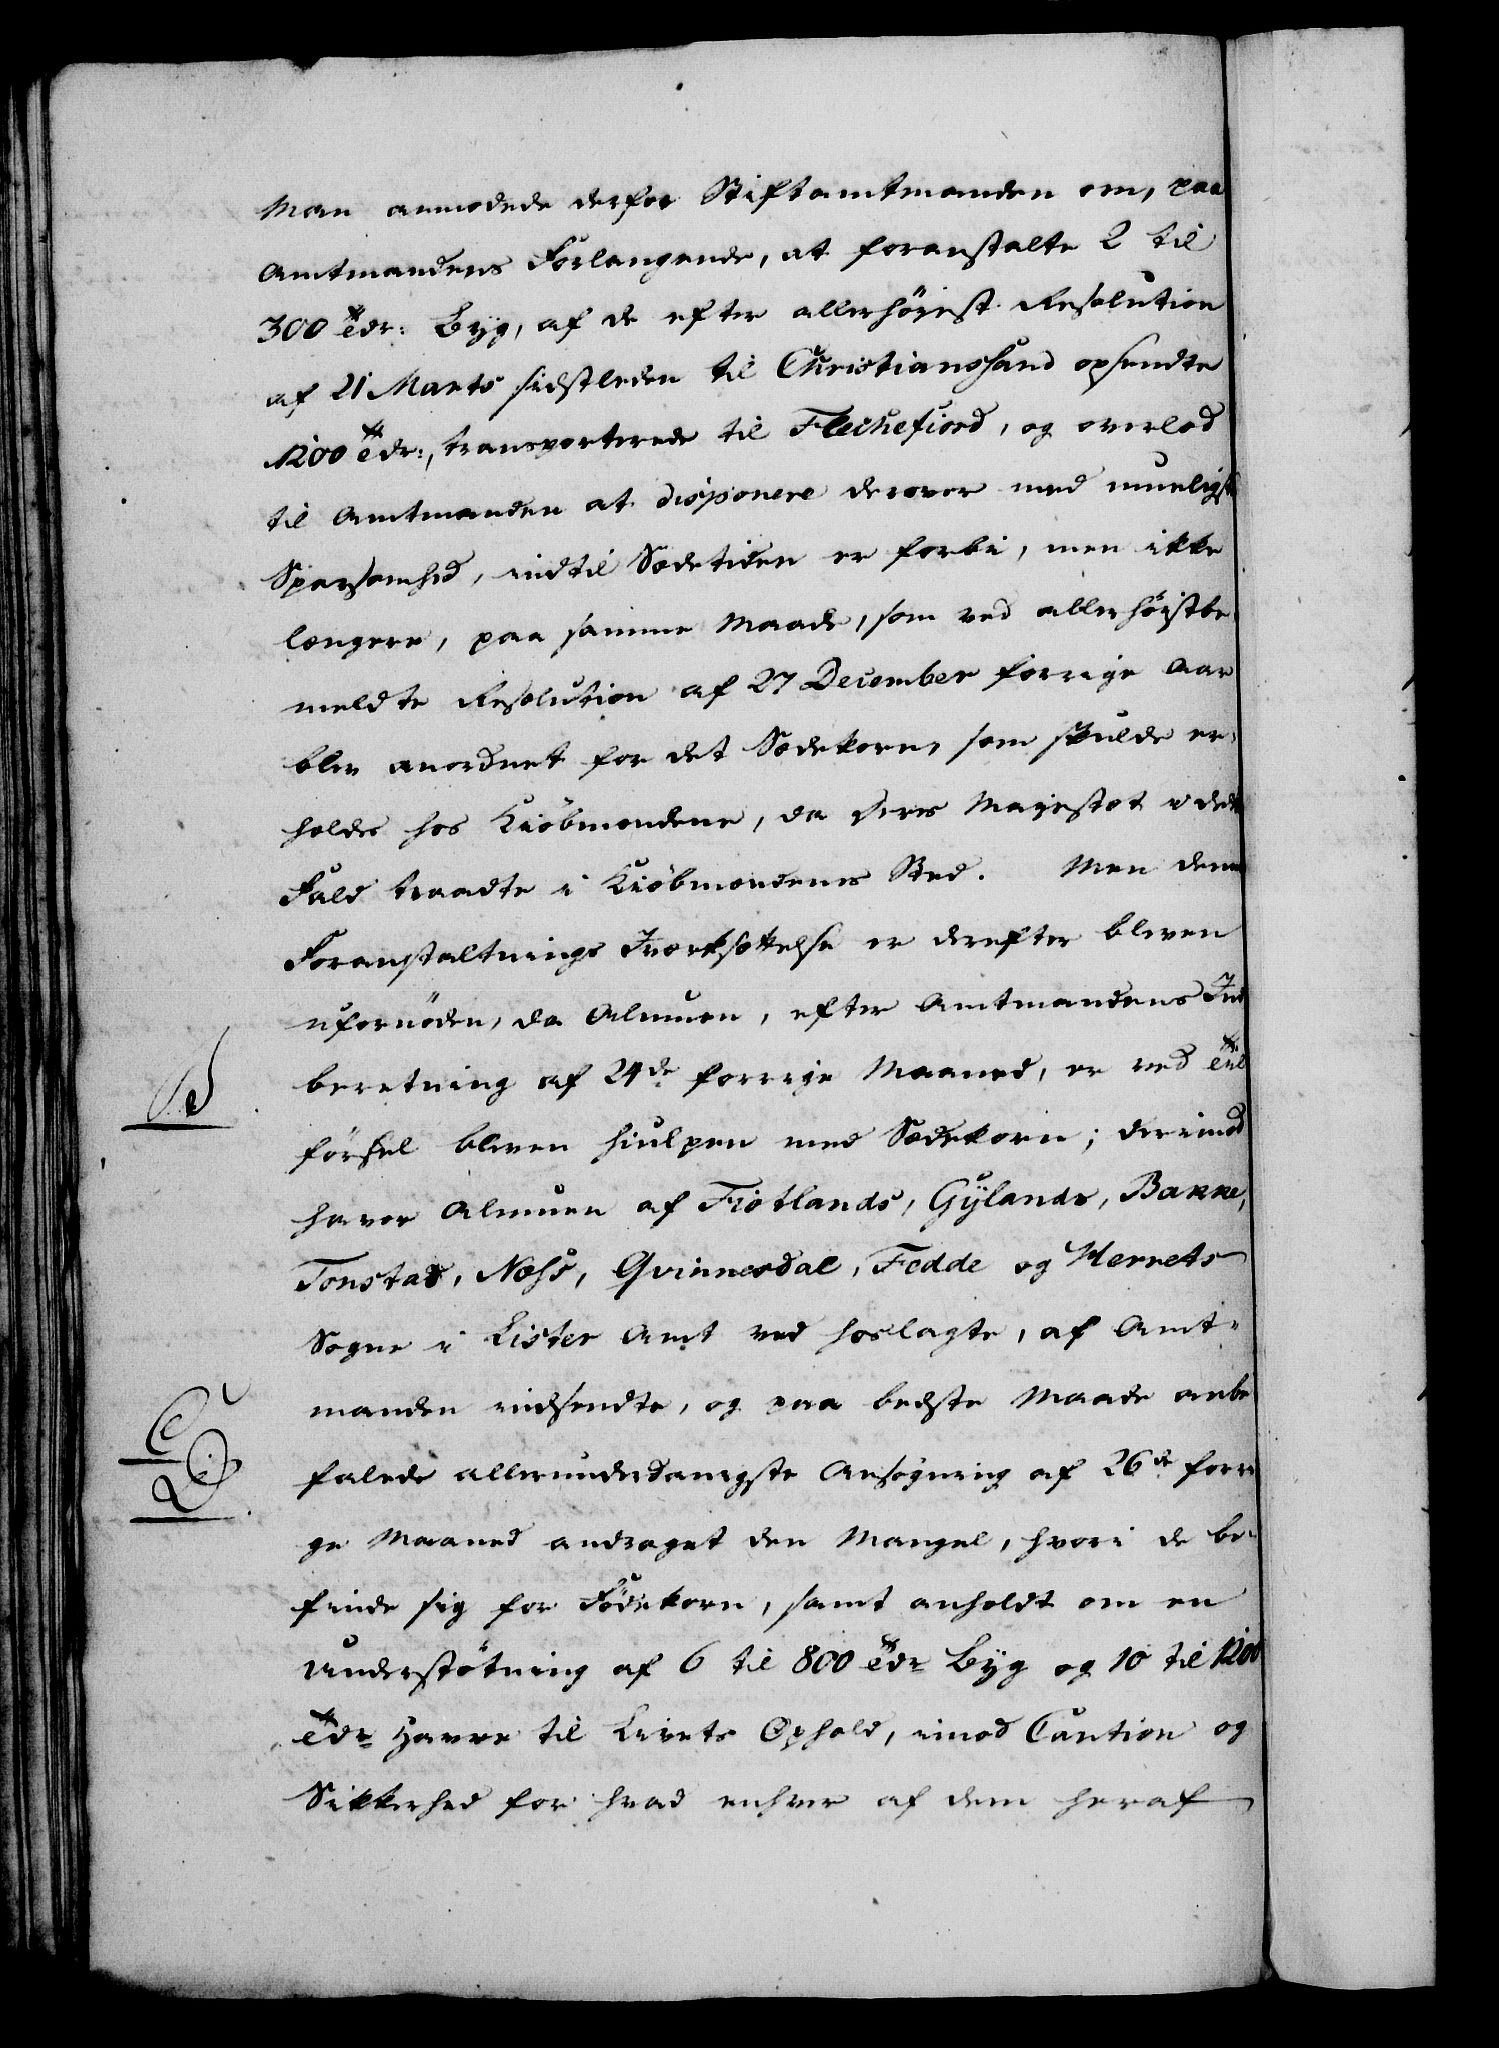 Man anmodede derfor Stiftamtmanden om, paa
Amtmandens Forlangende, at foranstalte 2 til
300 Tdr: Byg, af de efter allerhöyest Resolution
af 21 Marts sidstleden til Christianssand opsendte
1200 Tdr:, transporterede til Flechefiord, og overlod
til Amtmanden at disponere derover med mueligste
Sparsomhed, indtil Sædetiden er forbi, men ikke
længere, paa samme Maade, som ved allerhöistbe-
meldte Resolution af 27 December forrige Aar
blev anordnet for det Sædekorn, som skulde er-
holdes hos Kiöbmændene, da Deres Majestæt i dette
Fald traadte i Kiöbmændenes Sted. Men denne
Foranstaltnings Iværksættelse er derefter bleven
ufornöden, da Almuen, efter Amtmandens Ind-
beretning af 24de forrige Maaned, er ved Til-
försel bleven hiulpen med Sædekorn; derimod
haver Almuen af Fiotlands, Gÿlands, Bakke,
Tonstad, Næss, Qvinnesdal, Fedde og Herrets
Sogne i Lister Amt ved hoslagte, af Amt-
manden indsendte, og paa bedste Maade anbe-
falede allerunderdanigste Ansögning af 26de forri-
ge Maaned andraget den Mangel, hvori de be-
finde sig for Födekorn, samt anholdt om en
Understötning af 6 til 800 Tdr Byg og 10 til 1200
Tdr Havre til Livets Ophold, imod Caution og
Sikkerhed for hvad enhver af dem heraf
C
D